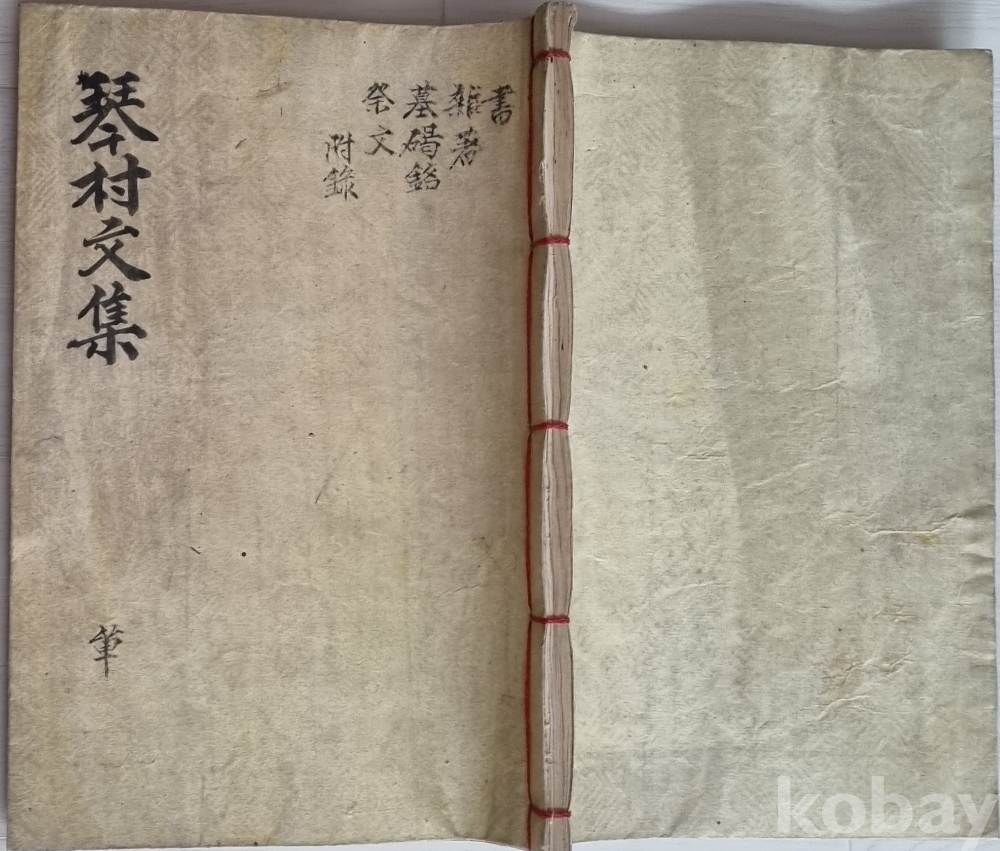 書
雜著
墓碣銘
祭文
附錄
琴村文集
單
kobay